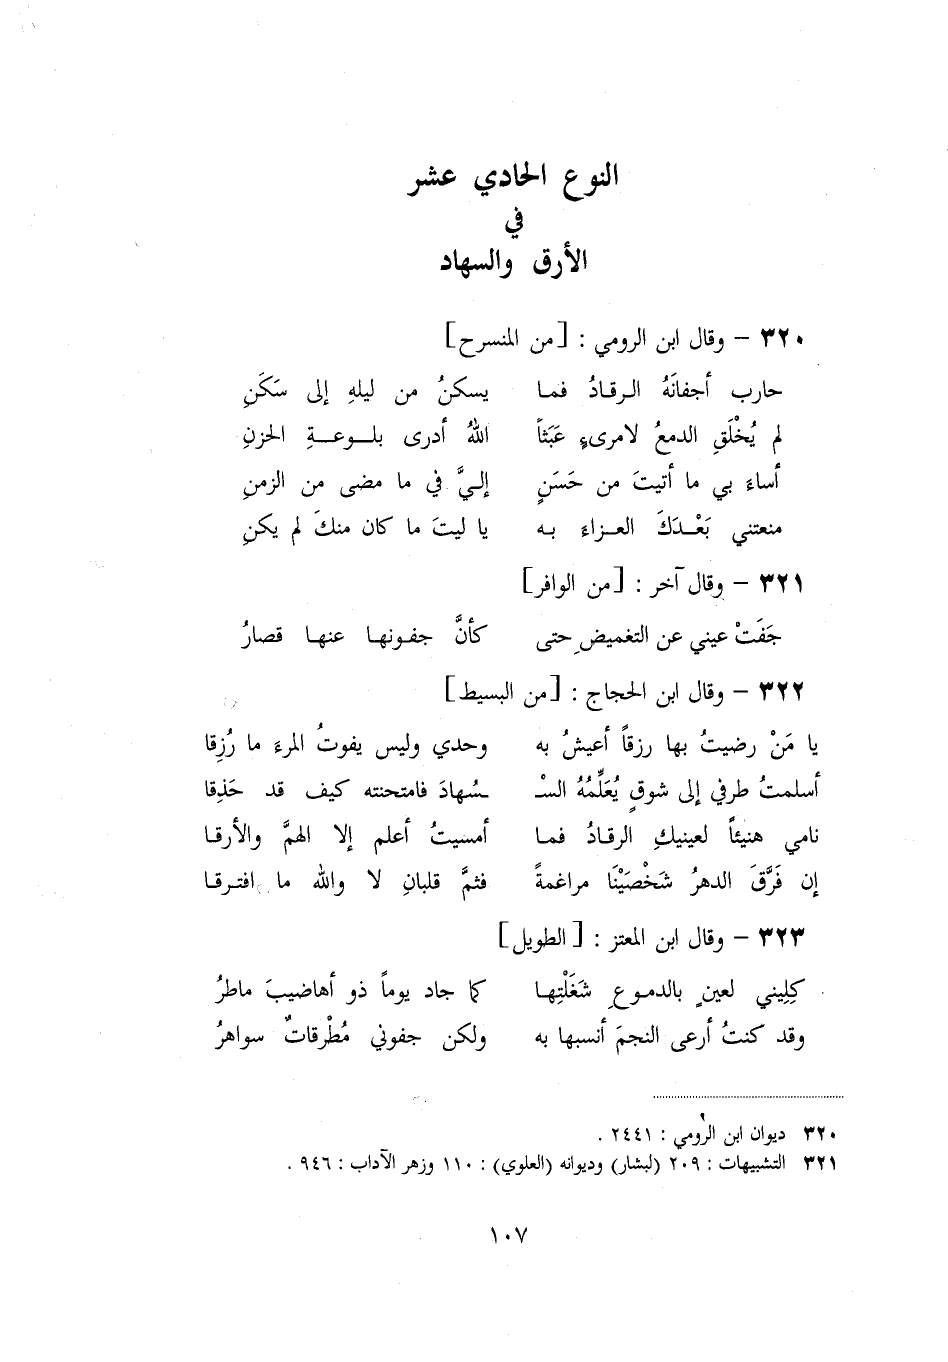 النوع الحادي عشر
في
الأرق والسهاد
٣٢٠ – وقال ابن الرومي : [من المنسرح]
حارب أجفانَهُ الرقادُ فما يسكنُ من ليلهِ إلى سَكَنِ
لم يُخْلَقِ الدمعُ لامرىءٍ عَبَثاً اللهُ أدرى بلوعةِ الحزنِ
أساءَ بي ما أتيتَ من حَسَنٍ إليَّ في ما مضى من الزمنِ
منعتني بَعْدَكَ العزاءَ به يا ليتَ ما كان منكَ لم يكنِ
٣٢١ – وقال آخر : [من الوافر]
جَفَتْ عيني عن التغميضِ حتى كأنَّ جفونها عنها قصارُ
٣٢٢ – وقال ابن الحجاج : [من البسيط]
يا مَنْ رضيتُ بها رزقاً أعيشُ به وحدي وليس يفوتُ المرءَ ما رُزِقا
أسلمتُ طرفي إلى شوقٍ يُعَلِّمُهُ السْـ ـسُهادَ فامتحنته كيف قد حَذِقا
نامي هنيئاً لعينيكِ الرقادُ فما أمسيتُ أعلم إلا الهمَّ والأرقا
إن فَرَّقَ الدهرُ شَخْصَيْنَا مراغمةً فثمَّ قلبانِ لا والله ما افترقا
٣٢٣ – وقال ابن المعتز : [الطويل]
كِلِيني لعينٍ بالدموعِ شَغَلْتِها كما جاد يوماً ذو أهاضيبَ ماطرُ
وقد كنتُ أرعى النجمَ أنسبها به ولكن جفوني مُطْرقاتٌ سواهرُ
٣٢٠ ديوان ابن الرومي : ٢٤٤١ .
٣٢١ التشبيهات : ٢٠٩ (لبشار) وديوانه (العلوي) : ١١٠ وزهر الآداب : ٩٤٦ .
١٠٧